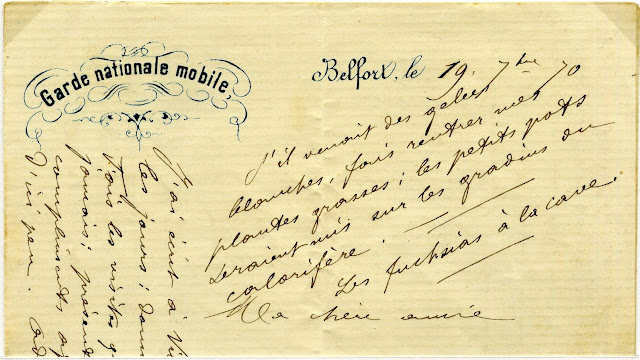 Garde nationale mobile,
Belfort, le 19. 7bre 70
S'il venait des gelées
blanches, fais rentrer mes
plantes grasses; les petits pots
seraient mis sur les gradins du
calorifère.
Les fuchsias à la cave.
Ma chère amie
J'ai écrit à
les jours; donne
tous les visites
jamais; présent
compliments
D'ici peu.